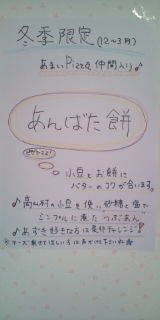 冬季限定(12〜3月)
あまいPizza 仲間入り♪
あんばた餅
小豆とお餅に
バターのコクが合います。
♪高山村の小豆を使い砂糖と塩で
シンプルに煮たつぶあん
♪あずき好きな方は是非チャレンジ!
チーズ乗せてほしい方はお申し付け下さいね